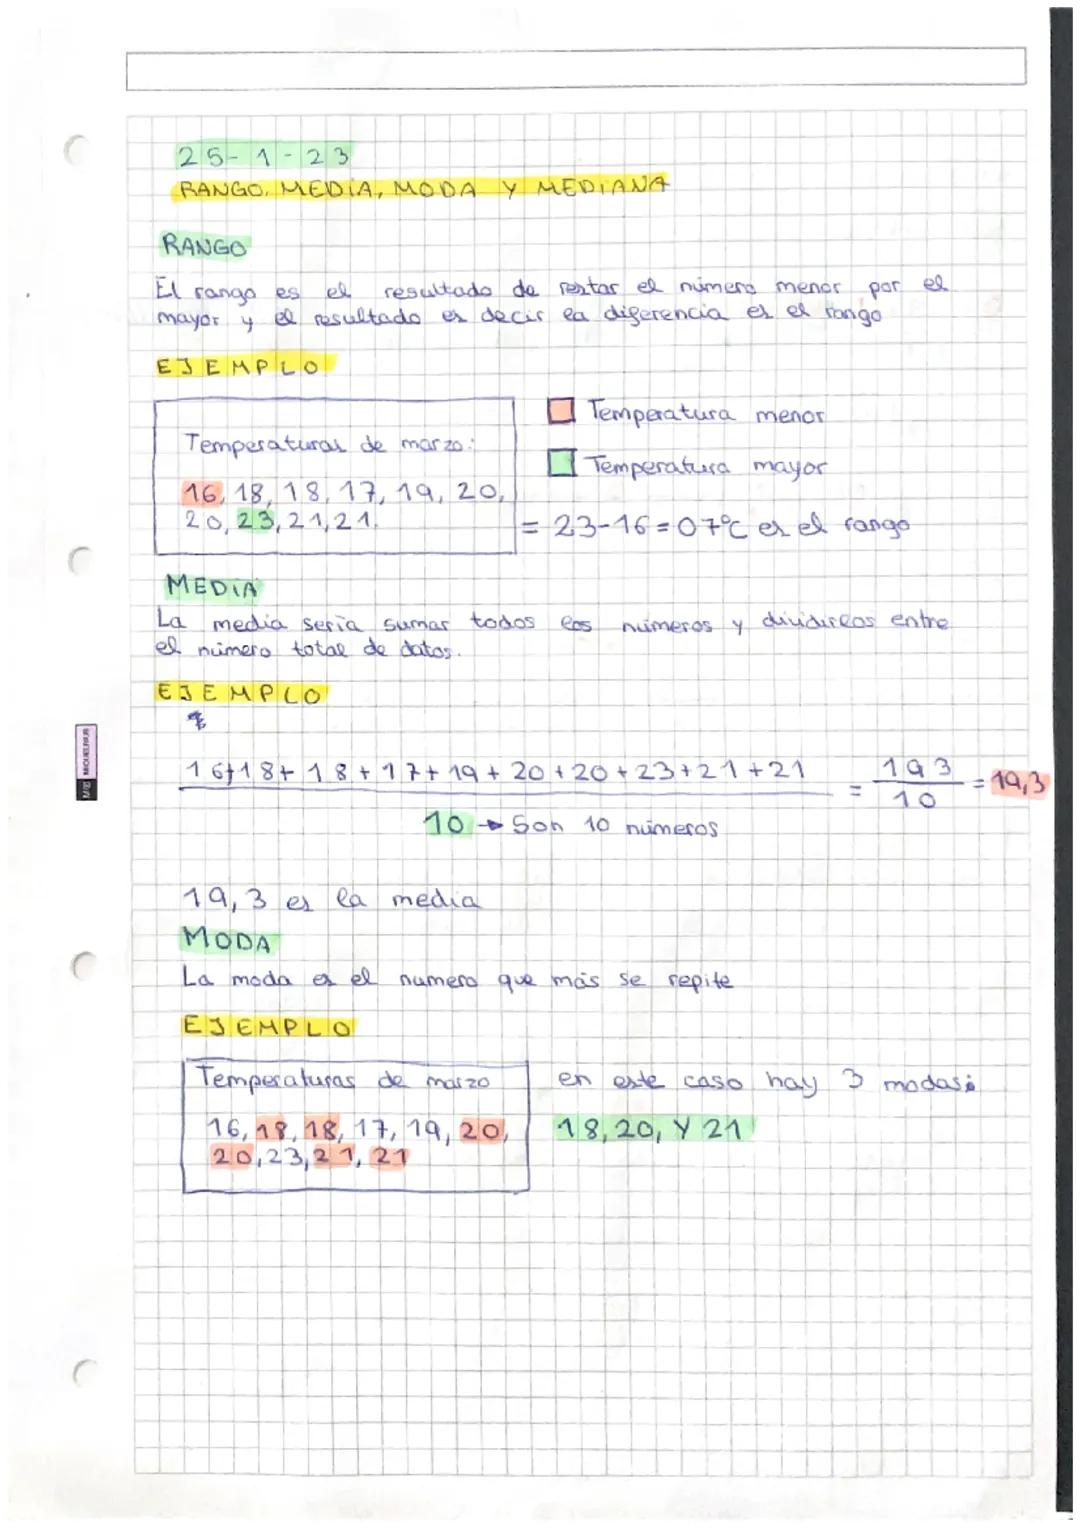 25-1-23
RANGO, MEDIA, MODA Y MEDIANA
RANGO
El rango es el resultado de restar el número menor por el
mayor y el resultado es decir la diferencia es el rango
EJEMPLO
Temperaturas de marzo:
16, 18, 18, 17, 19, 20,
20, 23, 21, 21.
Temperatura menor
Temperatura mayor
= 23-16 = 07°C es el rango
MEDIA
La media sería sumar todos los números y dividirlos entre
el número total de datos.
EJEMPLO
16+18+18+17+19+20+20+23+21+21
10 → Son 10 números
= 193
10
= 19,3
19,3 es la media
MODA
La moda es el numero que más se repite
EJEMPLO
Temperaturas de marzo
16, 18, 18, 17, 19, 20,
20, 23, 21, 21
en este caso hay 3 modas:
18, 20, Y 21
MIQUELRIUS